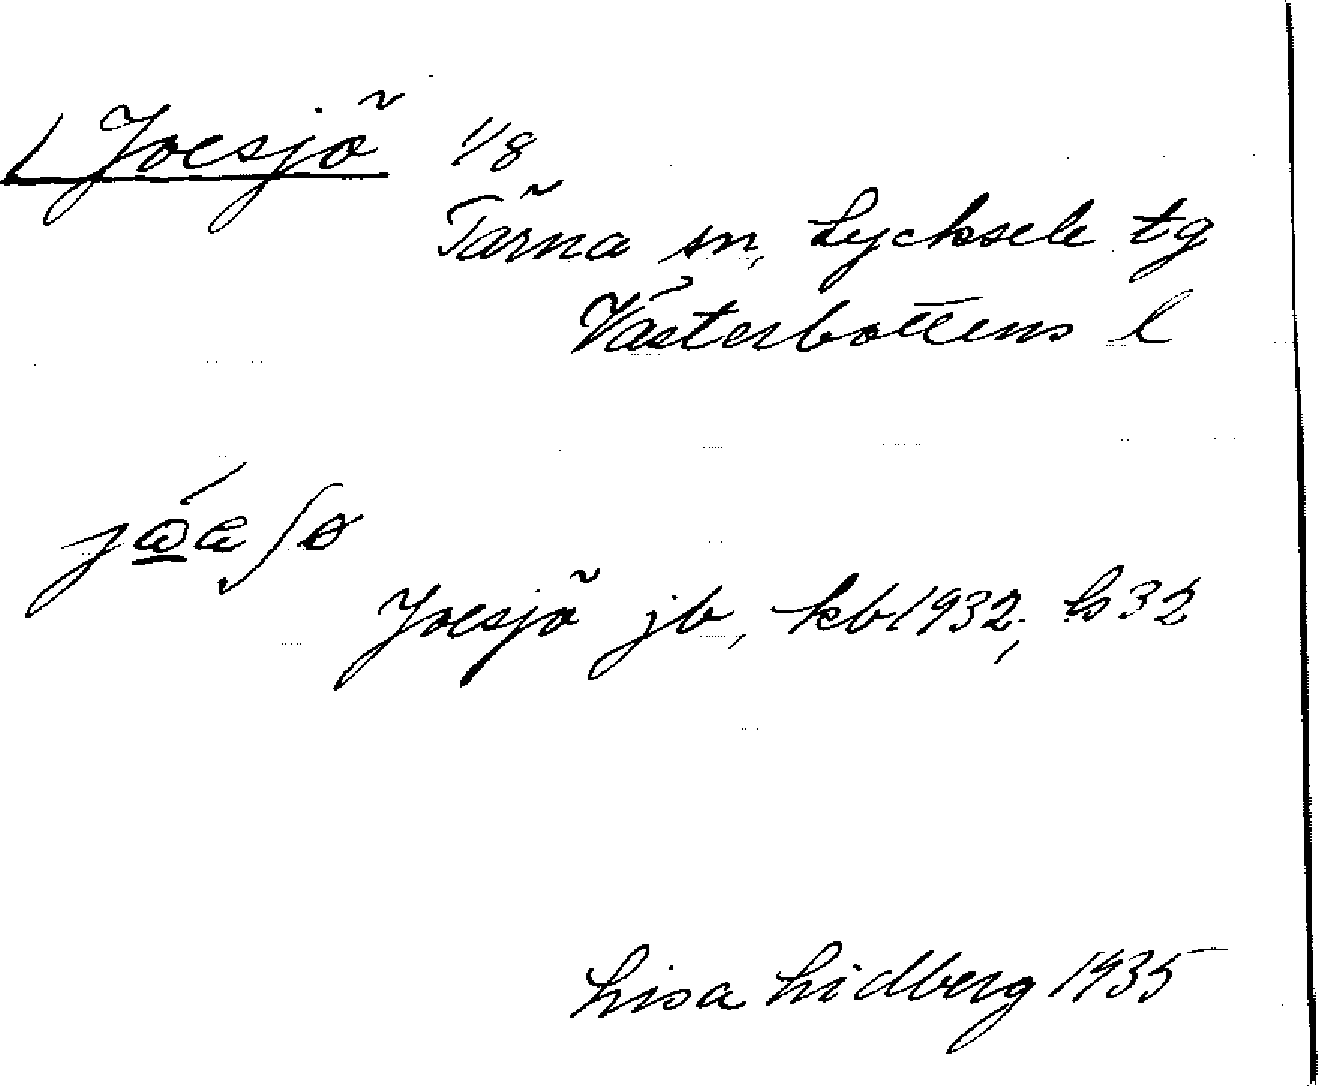 Joesjö 1/8
Tärna sn, Lycksele tg
Västerbottens l
Joesjö jb, kb 1932, h 32
Lisa Lidberg 1935